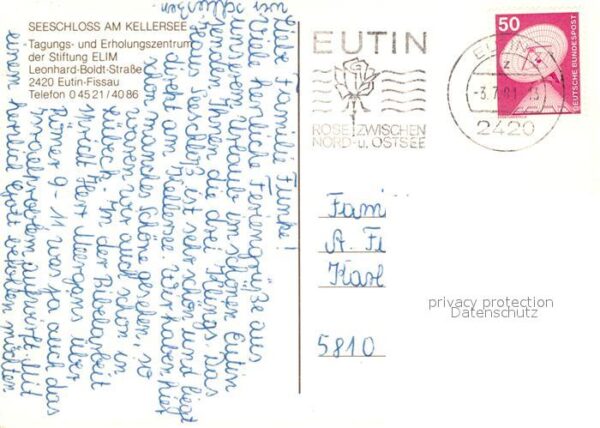 SEESCHLOSS AM KELLERSEE
Tagungs- und Erholungszentrum
der Stiftung ELIM
Leonhard-Boldt-Straße
2420 Eutin-Fissau
Telefon 0 45 21 / 40 86
EUTIN
ROSE ZWISCHEN
NORD- u. OSTSEE
2420
50
DEUTSCHE BUNDESPOST
Liebe Familie Funke!
Viele herzliche Feriengrüße aus
unserem Urlaub im schönen Eutin
senden Ihnen die drei Das
Haus Seeschloß ist sehr schön und liegt
direkt am Kellersee. Wir haben hier
schon manches schöne gesehen, so
waren wir auch schon in
Lübeck. In der Bibelarbeit
Herr über
Römer 9-11 was ja auch das
Mit
einem Gott befohlen möchten
wir schließen
Fami
A. F
Karl
5810
privacy protection
Datenschutz